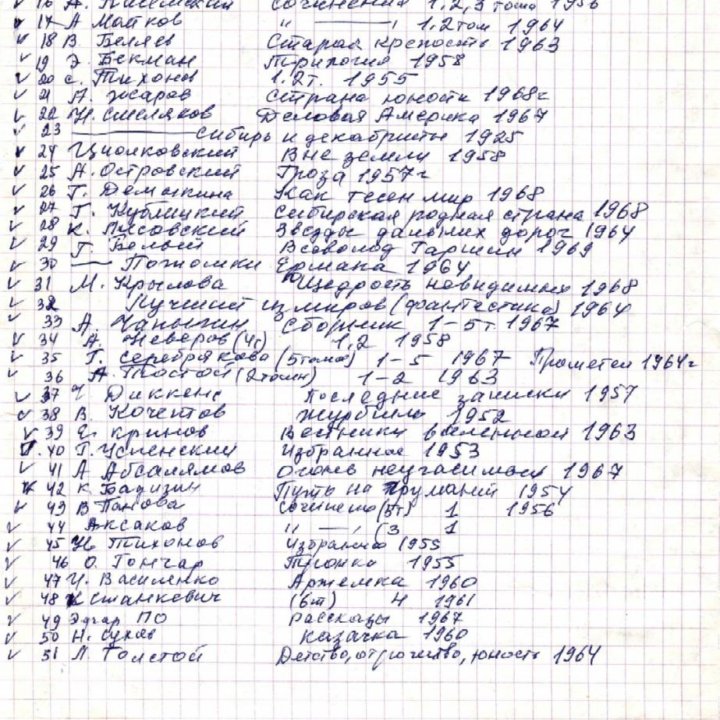 16 А. Писемский сочинения 1,2,3 тома 1956
17 А Майков " — " 1.2 том 1964
18 В. Беляев Старая крепость 1963
19 Э. Бекман Трилогия 1958
20 с. Тихонов 1.2т. 1955
21 А. Жаров Страна юности 1968г
22 Н. Смеляков Деловая Америка 1967
23 Сибирь и декабристы 1925
24 Циолковский Вне земли 1958
25 А. Островский Гроза 1957г
26 Г. Демыкина Как тесен мир 1968
27 Г. Кублицкий Сибирская родная страна 1968
28 К. Лисовский Звезды дальних дорог 1964
29 Г. Белый Всеволод Гаршин 1969
30 — Потомки Ермака 1964
31 М. Крылова Щедрость невидимых 1968
32 Лучший из миров (фантастика) 1964
33 А. Чапыгин Сборник 1-5т 1967
34 А. Неверов (4) 1,2 1958
35 Г. серебрякова (5томов) 1-5 1967 Прометей 1964г
36 А. Толстой (2 томн) 1-2 1963
37 Ч Диккенс Последние записки 1957
38 В. Кочетов Журбины 1952
39 Е. Кринов Вестники вселенной 1963
40 Г. Успенский Избранное 1953
41 А Абсалямов Огонь неугасимый 1967
42 К. Бадигин Путь на Грумант 1954
43 В Панова Сочинено (5т) 1 1956
44 Аксаков " — " (3 1
45 Н. Тихонов Избранное 1955
46 О. Гончар Тронка 1955
47 И. Василенко Артемка 1960
48 К Станкевич (6т) 4 1961
49 Эдгар ПО рассказы 1967
50 Н. Сухов казачка 1960
51 Л. Толстой Детство, отрочество, юность 1964